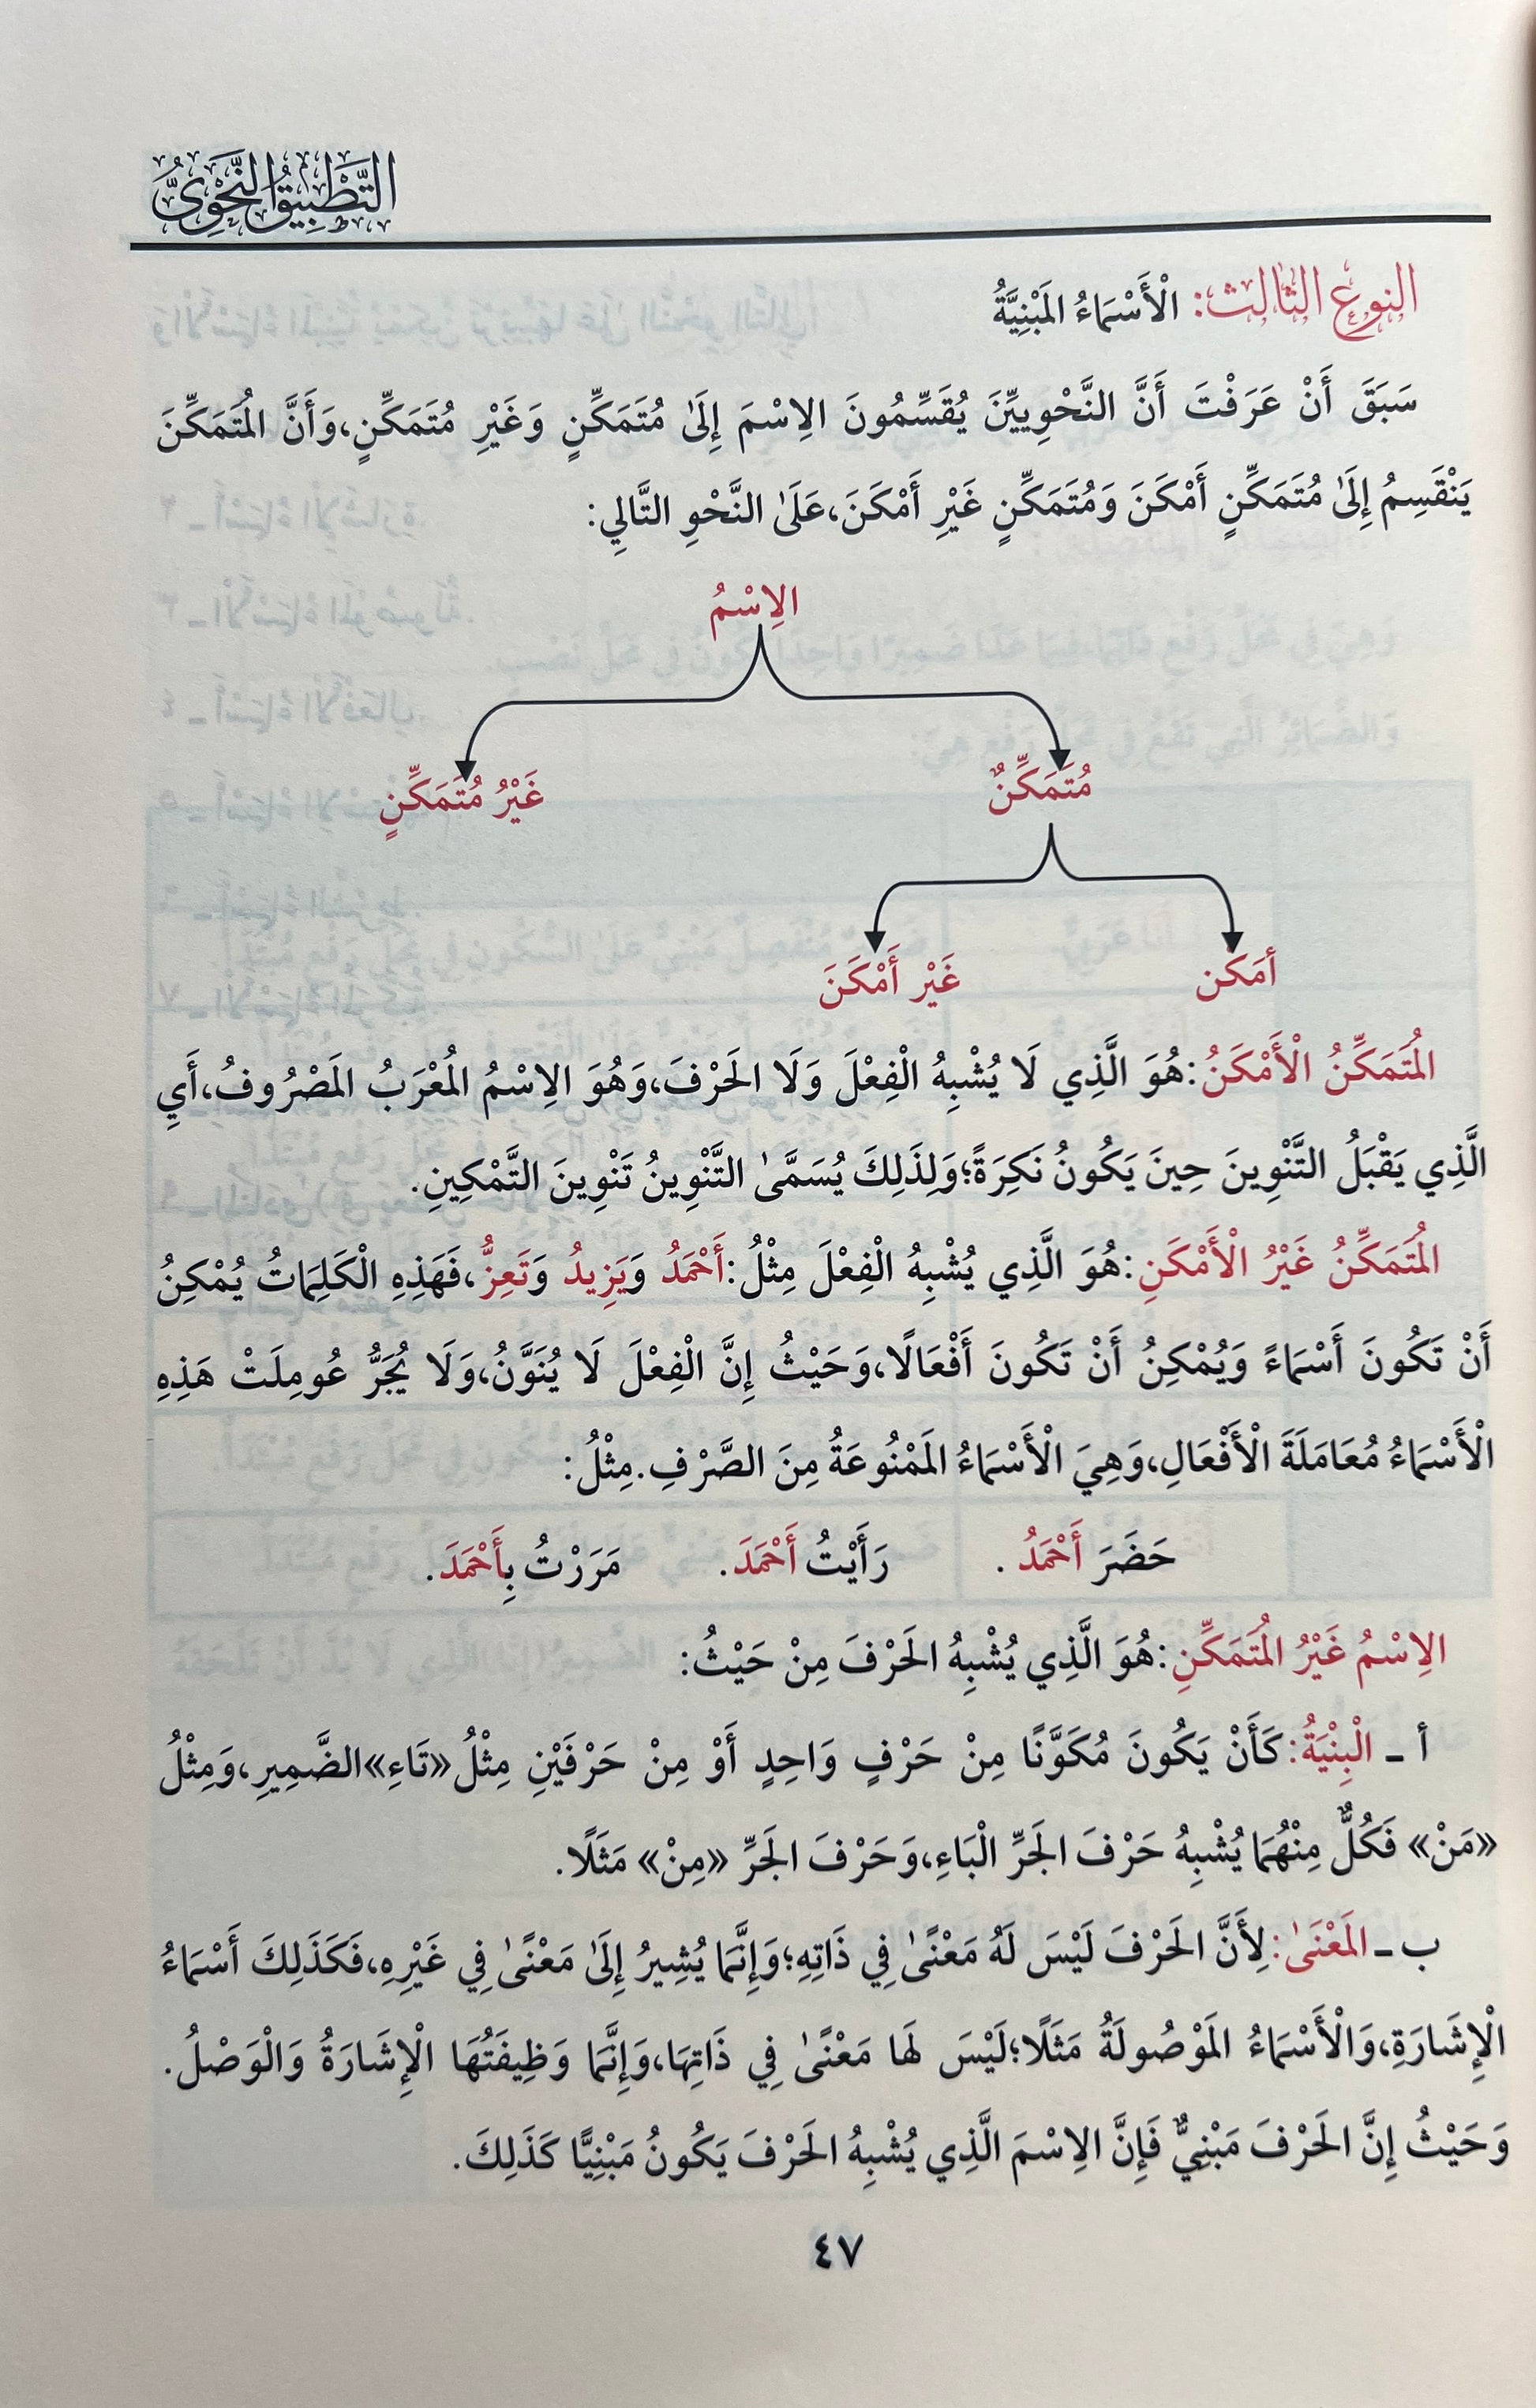 التَّطْبِيقُ النَّحْوِيُّ
النوع الثالث: الْأَسْمَاءُ الْمَبْنِيَّةُ
سَبَقَ أَنْ عَرَفْتَ أَنَّ النَّحْوِيِّينَ يُقَسِّمُونَ الِاسْمَ إِلَىٰ مُتَمَكِّنٍ وَغَيْرِ مُتَمَكِّنٍ،وَأَنَّ الْمُتَمَكِّنَ
يَنْقَسِمُ إِلَىٰ مُتَمَكِّنٍ أَمْكَنَ وَمُتَمَكِّنٍ غَيْرِ أَمْكَنَ،عَلَىٰ النَّحْوِ التَّالِي:
الِاسْمُ
مُتَمَكِّنٌ غَيْرُ مُتَمَكِّنٍ
أمَكَن غَيْر أَمْكَنَ
الْمُتَمَكِّنُ الْأَمْكَنُ:هُوَ الَّذِي لَا يُشْبِهُ الْفِعْلَ وَلَا الْحَرْفَ،وَهُوَ الِاسْمُ الْمُعْرَبُ الْمَصْرُوفُ،أَيِ
الَّذِي يَقْبَلُ التَّنْوِينَ حِينَ يَكُونُ نَكِرَةً؛وَلِذَلِكَ يُسَمَّىٰ التَّنْوِينُ تَنْوِينَ التَّمْكِينِ.
الْمُتَمَكِّنُ غَيْرُ الْأَمْكَنِ:هُوَ الَّذِي يُشْبِهُ الْفِعْلَ مِثْلُ:أَحْمَدُ وَيَزِيدُ وَتَعِزُّ،فَهَذِهِ الْكَلِمَاتُ يُمْكِنُ
أَنْ تَكُونَ أَسْمَاءً وَيُمْكِنُ أَنْ تَكُونَ أَفْعَالًا،وَحَيْثُ إِنَّ الْفِعْلَ لَا يُنَوَّنُ،وَلَا يُجَرُّ عُومِلَتْ هَذِهِ
الْأَسْمَاءُ مُعَامَلَةَ الْأَفْعَالِ،وَهِيَ الْأَسْمَاءُ الْمَمْنُوعَةُ مِنَ الصَّرْفِ.مِثْلُ:
حَضَرَ أَحْمَدُ . رَأَيْتُ أَحْمَدَ. مَرَرْتُ بِأَحْمَدَ.
الِاسْمُ غَيْرُ الْمُتَمَكِّنِ:هُوَ الَّذِي يُشْبِهُ الْحَرْفَ مِنْ حَيْثُ:
أ ـ الْبِنْيَةُ:كَأَنْ يَكُونَ مُكَوَّنًا مِنْ حَرْفٍ وَاحِدٍ أَوْ مِنْ حَرْفَيْنِ مِثْلُ«تَاءِ»الضَّمِيرِ،وَمِثْلُ
«مَنْ» فَكُلٌّ مِنْهُمَا يُشْبِهُ حَرْفَ الْجَرِّ الْبَاءِ،وَحَرْفَ الْجَرِّ «مِنْ» مَثَلًا.
ب ـ الْمَعْنَىٰ:لِأَنَّ الْحَرْفَ لَيْسَ لَهُ مَعْنًىٰ فِي ذَاتِهِ؛وَإِنَّمَا يُشِيرُ إِلَىٰ مَعْنًىٰ فِي غَيْرِهِ،فَكَذَلِكَ أَسْمَاءُ
الْإِشَارَةِ،وَالْأَسْمَاءُ الْمَوْصُولَةُ مَثَلًا؛لَيْسَ لَهَا مَعْنًىٰ فِي ذَاتِهَا،وَإِنَّمَا وَظِيفَتُهَا الْإِشَارَةُ وَالْوَصْلُ.
وَحَيْثُ إِنَّ الْحَرْفَ مَبْنِيٌّ فَإِنَّ الِاسْمَ الَّذِي يُشْبِهُ الْحَرْفَ يَكُونُ مَبْنِيًّا كَذَلِكَ.
٤٧